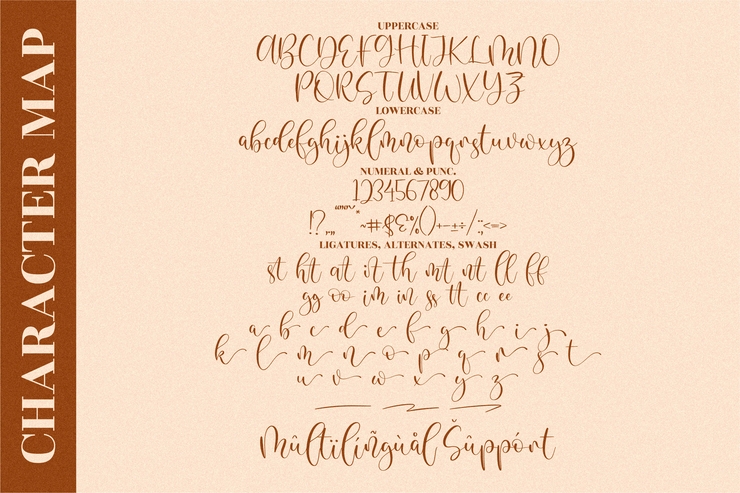 CHARACTER MAP
UPPERCASE
ABCDEFGHIJKLMNO
PQRSTUVWXYZ
LOWERCASE
abcdefghijklmnopqrstuvwxyz
NUMERAL & PUNC.
1234567890
LIGATURES, ALTERNATES, SWASH
st ht at it th mt nt ll ff
gg oo im in ss tt cc ee
a b c d e f g h i j
k l m n o p q r s t
u v w x y z
Mûltïlíñgùål Šûppórt